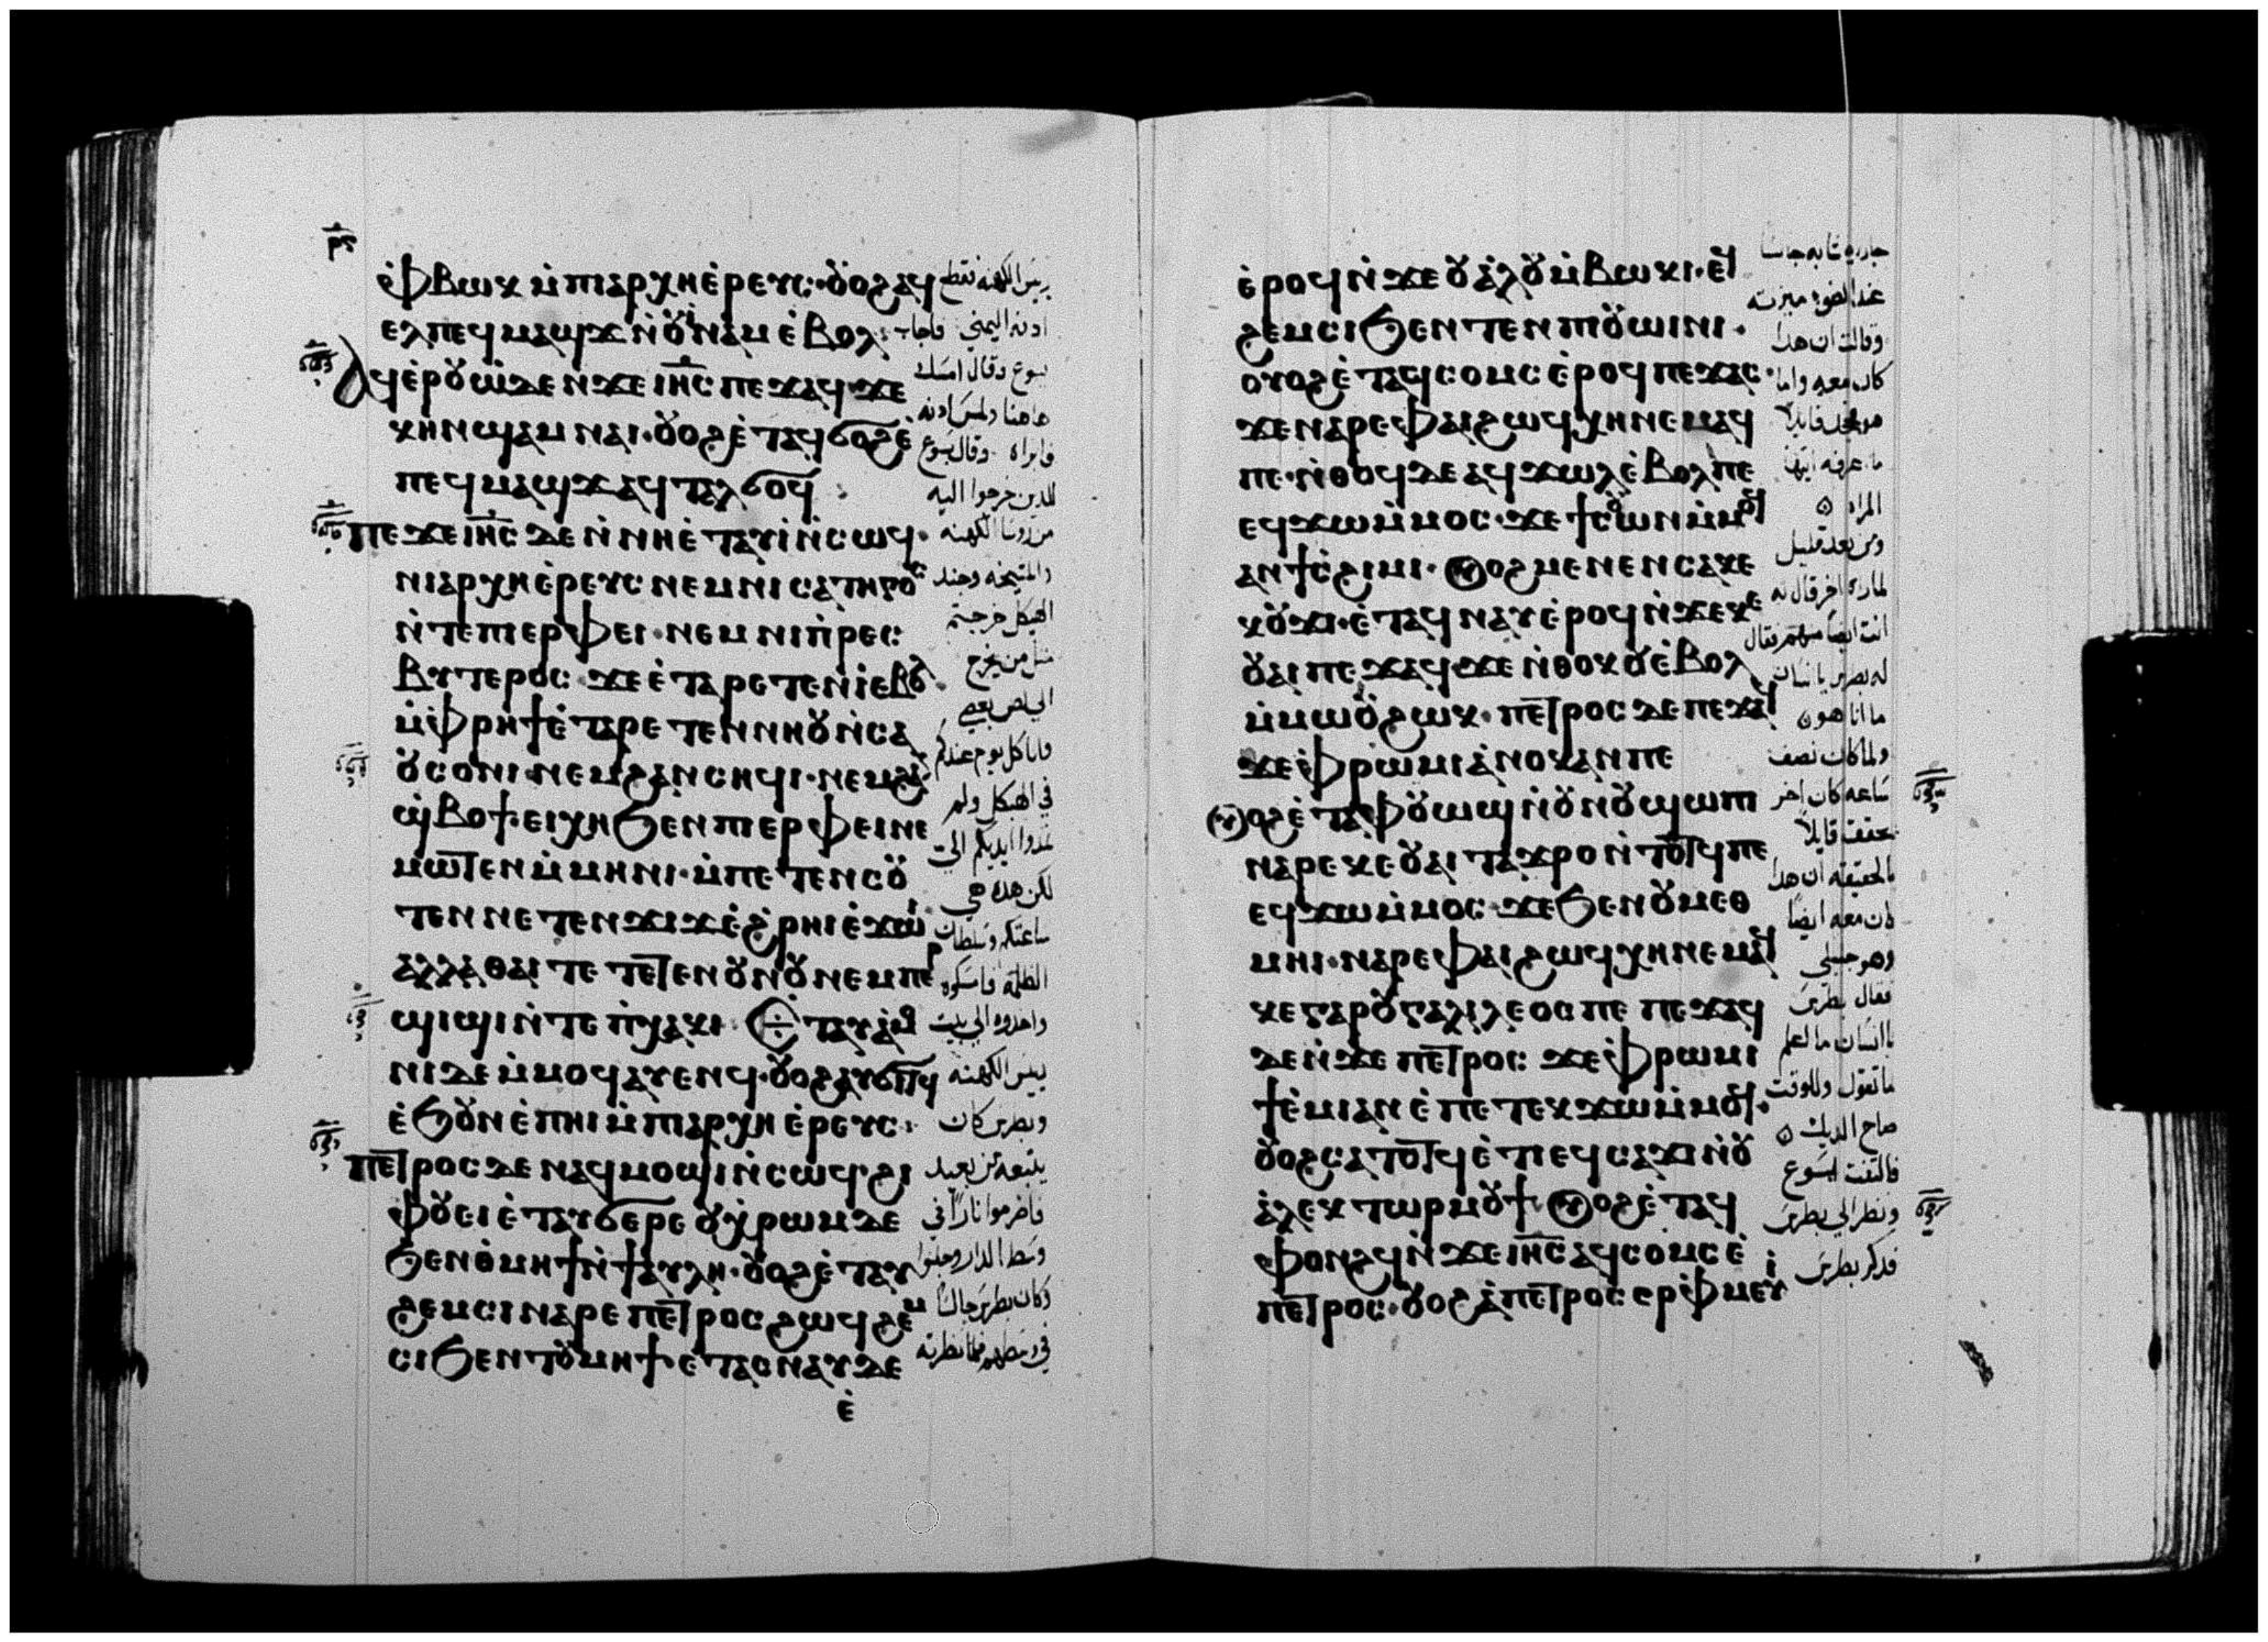 ⲣ̅ϛ
ⲙ̀ⲫⲃⲱⲕ ⲙ̀ⲡⲓⲁⲣⲭⲏⲉ̀ⲣⲉⲩⲥ· ⲟⲩⲟϩ ⲁϥ
ⲉⲗ ⲡⲉϥⲙⲁϣϫ ⲛ̀ⲟⲩⲓ̀ⲛⲁⲙ ⲉ̀ⲃⲟⲗ:
ⲁϥⲉ̀ⲣⲟⲩⲱ̀ ⲇⲉ ⲛϫⲉ ⲓⲏ̅ⲥ ⲡⲉϫⲁϥ· ϫⲉ
ⲕⲏⲛ ϣⲁⲙⲛⲁⲓ· ⲟⲩⲟϩ ⲉ̀ⲧⲁϥϭⲟϩ ⲉ̀
ⲡⲉϥⲙⲁϣϫ ⲁϥⲧⲁⲗϭⲟϥ :
ⲡⲉϫⲉ ⲓⲏ̅ⲥ ⲇⲉ ⲛ̀ⲛⲏⲉ̀ⲧⲁⲩⲓ̀ ⲛ̀ⲥⲱϥ·
ⲛⲓⲁⲣⲭⲏⲉ̀ⲣⲉⲩⲥ ⲛⲉⲙ ⲛⲓⲥⲁⲧⲏⲣⲟⲥ
ⲛ̀ⲧⲉ ⲡⲓⲉⲣⲫⲉⲓ· ⲛⲉⲙ ⲛⲓⲡ̀ⲣⲉⲥ
ⲃⲩⲧⲉⲣⲟⲥ· ϫⲉ ⲉ̀ⲧⲁⲣⲉⲧⲉⲛⲓ̀ ⲉⲃⲟⲗ·
ⲙ̀ⲫⲣⲏϯ ⲉ̀ⲧⲁⲣⲉⲧⲉⲛⲛⲏⲟⲩ ⲛ̀ⲥⲁ
ⲟⲩⲥⲟⲛⲓ· ⲛⲉⲙ ϩⲁⲛⲥⲏϥⲓ· ⲛⲉⲙ ϩⲁⲛ
ϣ̀ⲃⲟϯ· ⲉⲓⲭⲏ ϧⲉⲛ ⲡⲓⲉⲣⲫⲉⲓ ⲛⲉ
ⲙⲱⲧⲉⲛ ⲙ̀ⲙⲏⲛⲓ· ⲙ̀ⲡⲉⲧⲉⲛⲥⲟⲩ
ⲧⲉⲛ ⲛⲉⲧⲉⲛϫⲓϫ ⲉ̀ϩⲣⲏⲓ ⲉ̀ϫⲱⲓ·
ⲁⲗⲗⲁ ⲑⲁⲓ ⲧⲉ ⲧⲉⲧⲉⲛⲟⲩⲛⲟⲩ ⲛⲉⲙ ⲡⲉⲣ
ϣⲓϣⲓ ⲛ̀ⲧⲉ ⲡ̀ⲭⲁⲕⲓ· ⲉⲧⲁⲩⲁ̀ⲙⲟ
ⲛⲓ ⲇⲉ ⲙ̀ⲙⲟϥ ⲁⲩⲉⲛϥ· ⲟⲩⲟϩ ⲁⲩϭⲓⲧϥ
ⲉ̀ϧⲟⲩⲛ ⲉ̀ⲡⲏⲓ ⲙ̀ⲡⲓⲁⲣⲭⲏⲉ̀ⲣⲉⲩⲥ·
ⲡⲉⲧⲣⲟⲥ ⲇⲉ ⲛⲁϥⲙⲟϣⲓ ⲛ̀ⲥⲱϥ· ϩⲓ
ⲫⲟⲩⲉⲓ ⲉ̀ⲧⲁⲩϭⲉⲣⲉ ⲟⲩⲭ̀ⲣⲱⲙ ⲇⲉ
ϧⲉⲛ ⲑ̀ⲙⲏϯ ⲛ̀ϯⲁⲩⲗⲏ· ⲟⲩⲟϩ ⲉ̀ⲧⲁⲩ
ϩⲉⲙⲥⲓ ⲛⲁⲣⲉ ⲡⲉⲧⲣⲟⲥ ϩⲱϥ ϩⲉⲙ
ⲥⲓ ϧⲉⲛ ⲧⲟⲩⲙⲏϯ· ⲉ̀ⲧⲁⲥⲛⲁⲩ ⲇⲉ
ⲉ̀
ريس الكهنه فقطع
ادنه اليمني فاجاب
يسوع وقال امسك
هاهنا ولمس ادنه
فابراه وقال يسوع
للدين خرجوا اليه
من روسا الكهنه
والمشيخه وجند
الهيكل خرجتم
مثل من يخرج
الي لص بعصي
وانا كل يوم عندكم
في الهيكل ولم
تمدوا ايديكم الي
لكن هده هي
ساعتكم وسلطان
الظلمه فامسكوه
واخدوه الي بيت
ريس الكهنه
وبطرس كان
يتبعه من بعيد
فاضرموا نارا في
وسط الدار وجلسوا
وكان بطرس جالسا
في وسطهم فلما نظرته
ⲉ̀ⲣⲟϥ ⲛ̀ϫⲉ ⲟⲩⲁ̀ⲗⲟⲩ ⲙ̀ⲃⲱⲕⲓ· ⲉϥ
ϩⲉⲙⲥⲓ ϧⲉⲛ ⲧⲉⲛ ⲡⲓⲟⲩⲱⲓⲛⲓ·
ⲟⲩⲟϩ ⲉ̀ⲧⲁⲥⲥⲟⲙⲥ ⲉ̀ⲣⲟϥ ⲡⲉϫⲁⲥ·
ϫⲉ ⲛⲁⲣⲉ ⲫⲁⲓ ϩⲱϥ ⲭⲏ ⲛⲉⲙⲁϥ
ⲡⲉ· ⲛ̀ⲑⲟϥ ⲇⲉ ⲁϥϫⲱⲗ ⲉ̀ⲃⲟⲗ ⲡⲉ
ⲉϥϫⲱ ⲙ̀ⲙⲟⲥ· ϫⲉ ϯⲥⲱⲟⲩⲛ ⲙ̀ⲙⲟϥ
ⲁⲛ ϯⲥ̀ϩⲓⲙⲓ· ⲟⲩⲟϩ ⲙⲉⲛⲉⲛⲥⲁ ⲕⲉ
ⲕⲟⲩϫⲓ· ⲉ̀ⲧⲁϥⲛⲁⲩ ⲉ̀ⲣⲟϥ ⲛ̀ϫⲉ ⲕⲉ
ⲟⲩⲁⲓ ⲡⲉϫⲁϥ ϫⲉ ⲛ̀ⲑⲟⲕ ⲟⲩⲉ̀ⲃⲟⲗ
ⲙ̀ⲙⲱⲟⲩ ϩⲱⲕ· ⲡⲉⲧⲣⲟⲥ ⲇⲉ ⲡⲉϫⲁϥ
ϫⲉ ⲫ̀ⲣⲱⲙⲓ ⲁ̀ⲛⲟⲕ ⲁⲛ ⲡⲉ
ⲟⲩⲟϩ ⲉ̀ⲧⲁ ⲫⲟⲩⲱϣ ⲛ̀ⲟⲩⲛⲟⲩ ϣⲱⲡⲓ
ⲛⲁⲣⲉ ⲕⲉⲟⲩⲁⲓ ⲧⲁϫⲣⲟ ⲛ̀ⲧⲟⲧϥ ⲡⲉ
ⲉϥϫⲱ ⲙ̀ⲙⲟⲥ· ϫⲉ ϧⲉⲛ ⲟⲩⲙⲉⲑ
ⲙⲏⲓ· ⲛⲁⲣⲉ ⲫⲁⲓ ϩⲱϥ ⲭⲏ ⲛⲉⲙⲁϥ
ⲕⲉ ⲅⲁⲣ ⲟⲩⲅⲁⲗⲓⲗⲉⲟⲥ ⲡⲉ ⲡⲉϫⲁϥ
ⲇⲉ ⲛ̀ϫⲉ ⲡⲉⲧⲣⲟⲥ: ϫⲉ ⲫ̀ⲣⲱⲙⲓ
ϯⲉ̀ⲙⲓ ⲁⲛ ⲉ̀ⲡⲉⲧⲉⲕϫⲱ ⲙ̀ⲙⲟϥ·
ⲟⲩⲟϩ ⲥⲁⲧⲟⲧϥ ⲉ̀ⲧⲓ ⲉϥⲥⲁϫⲓ ⲛ̀ⲟⲩ
ⲁ̀ⲗⲉⲕⲧⲱⲣ ⲙⲟⲩϯ· ⲟⲩⲟϩ ⲉ̀ⲧⲁϥ
ⲫⲟⲛϩϥ ⲛ̀ϫⲉ ⲓⲏ̅ⲥ ⲁϥⲥⲟⲙⲥ ⲉ̀
ⲡⲉⲧⲣⲟⲥ· ⲟⲩⲟϩ ⲁ̀ ⲡⲉⲧⲣⲟⲥ ⲉⲣⲫ̀ⲙⲉⲩⲓ̀
جاريه شابه جالسا
عند الضوء ميزته
وقالت ان هدا
كان معه واما
هو فجحد قايلا
ما عرفه ايتها
المراه
ومن بعد قليل
لما راه اخر قال له
انت ايضا منهم فقال
له بطرس يا انسان
ما انا هو
ولما كان نصف
ساعه كان اخر
يحقق قايلا
بالحقيقه ان هدا
كان معه ايضا
وهو جليلي
فقال بطرس
يا انسان ما اعلم
ما تقول وللوقت
صاح الديك
فالتفت يسوع
ونظر الي بطرس
فدكر بطرس